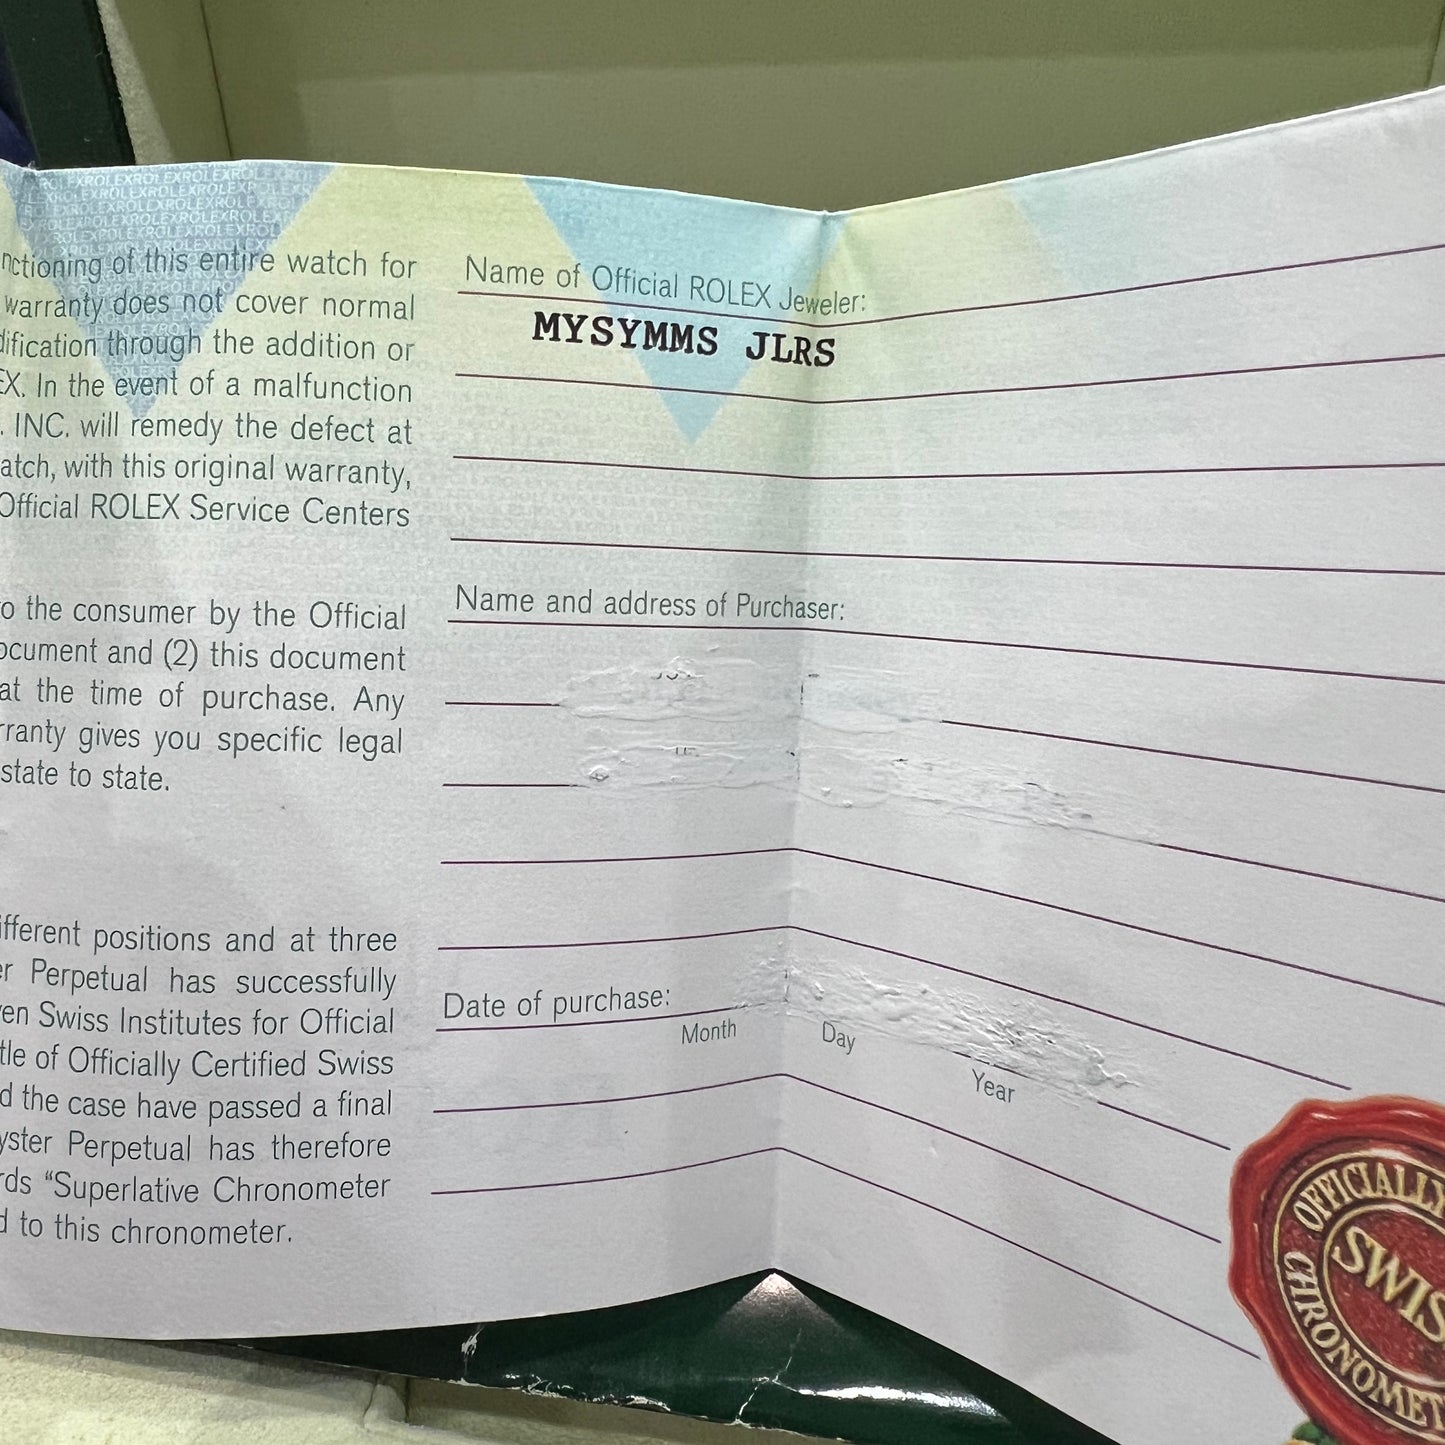 ROLEXROLEXROLEXROLEXROLEX
nctioning of this entire watch for
warranty does not cover normal
dification through the addition or
EX. In the event of a malfunction
. INC. will remedy the defect at
atch, with this original warranty,
Official ROLEX Service Centers
o the consumer by the Official
ocument and (2) this document
at the time of purchase. Any
rranty gives you specific legal
state to state.
ifferent positions and at three
er Perpetual has successfully
ven Swiss Institutes for Official
tle of Officially Certified Swiss
d the case have passed a final
yster Perpetual has therefore
rds “Superlative Chronometer
d to this chronometer.
Name of Official ROLEX Jeweler:
MYSYMMS JLRS
Name and address of Purchaser:
Date of purchase:
Month Day Year
OFFICIALLY
SWIS
CHRONOMET